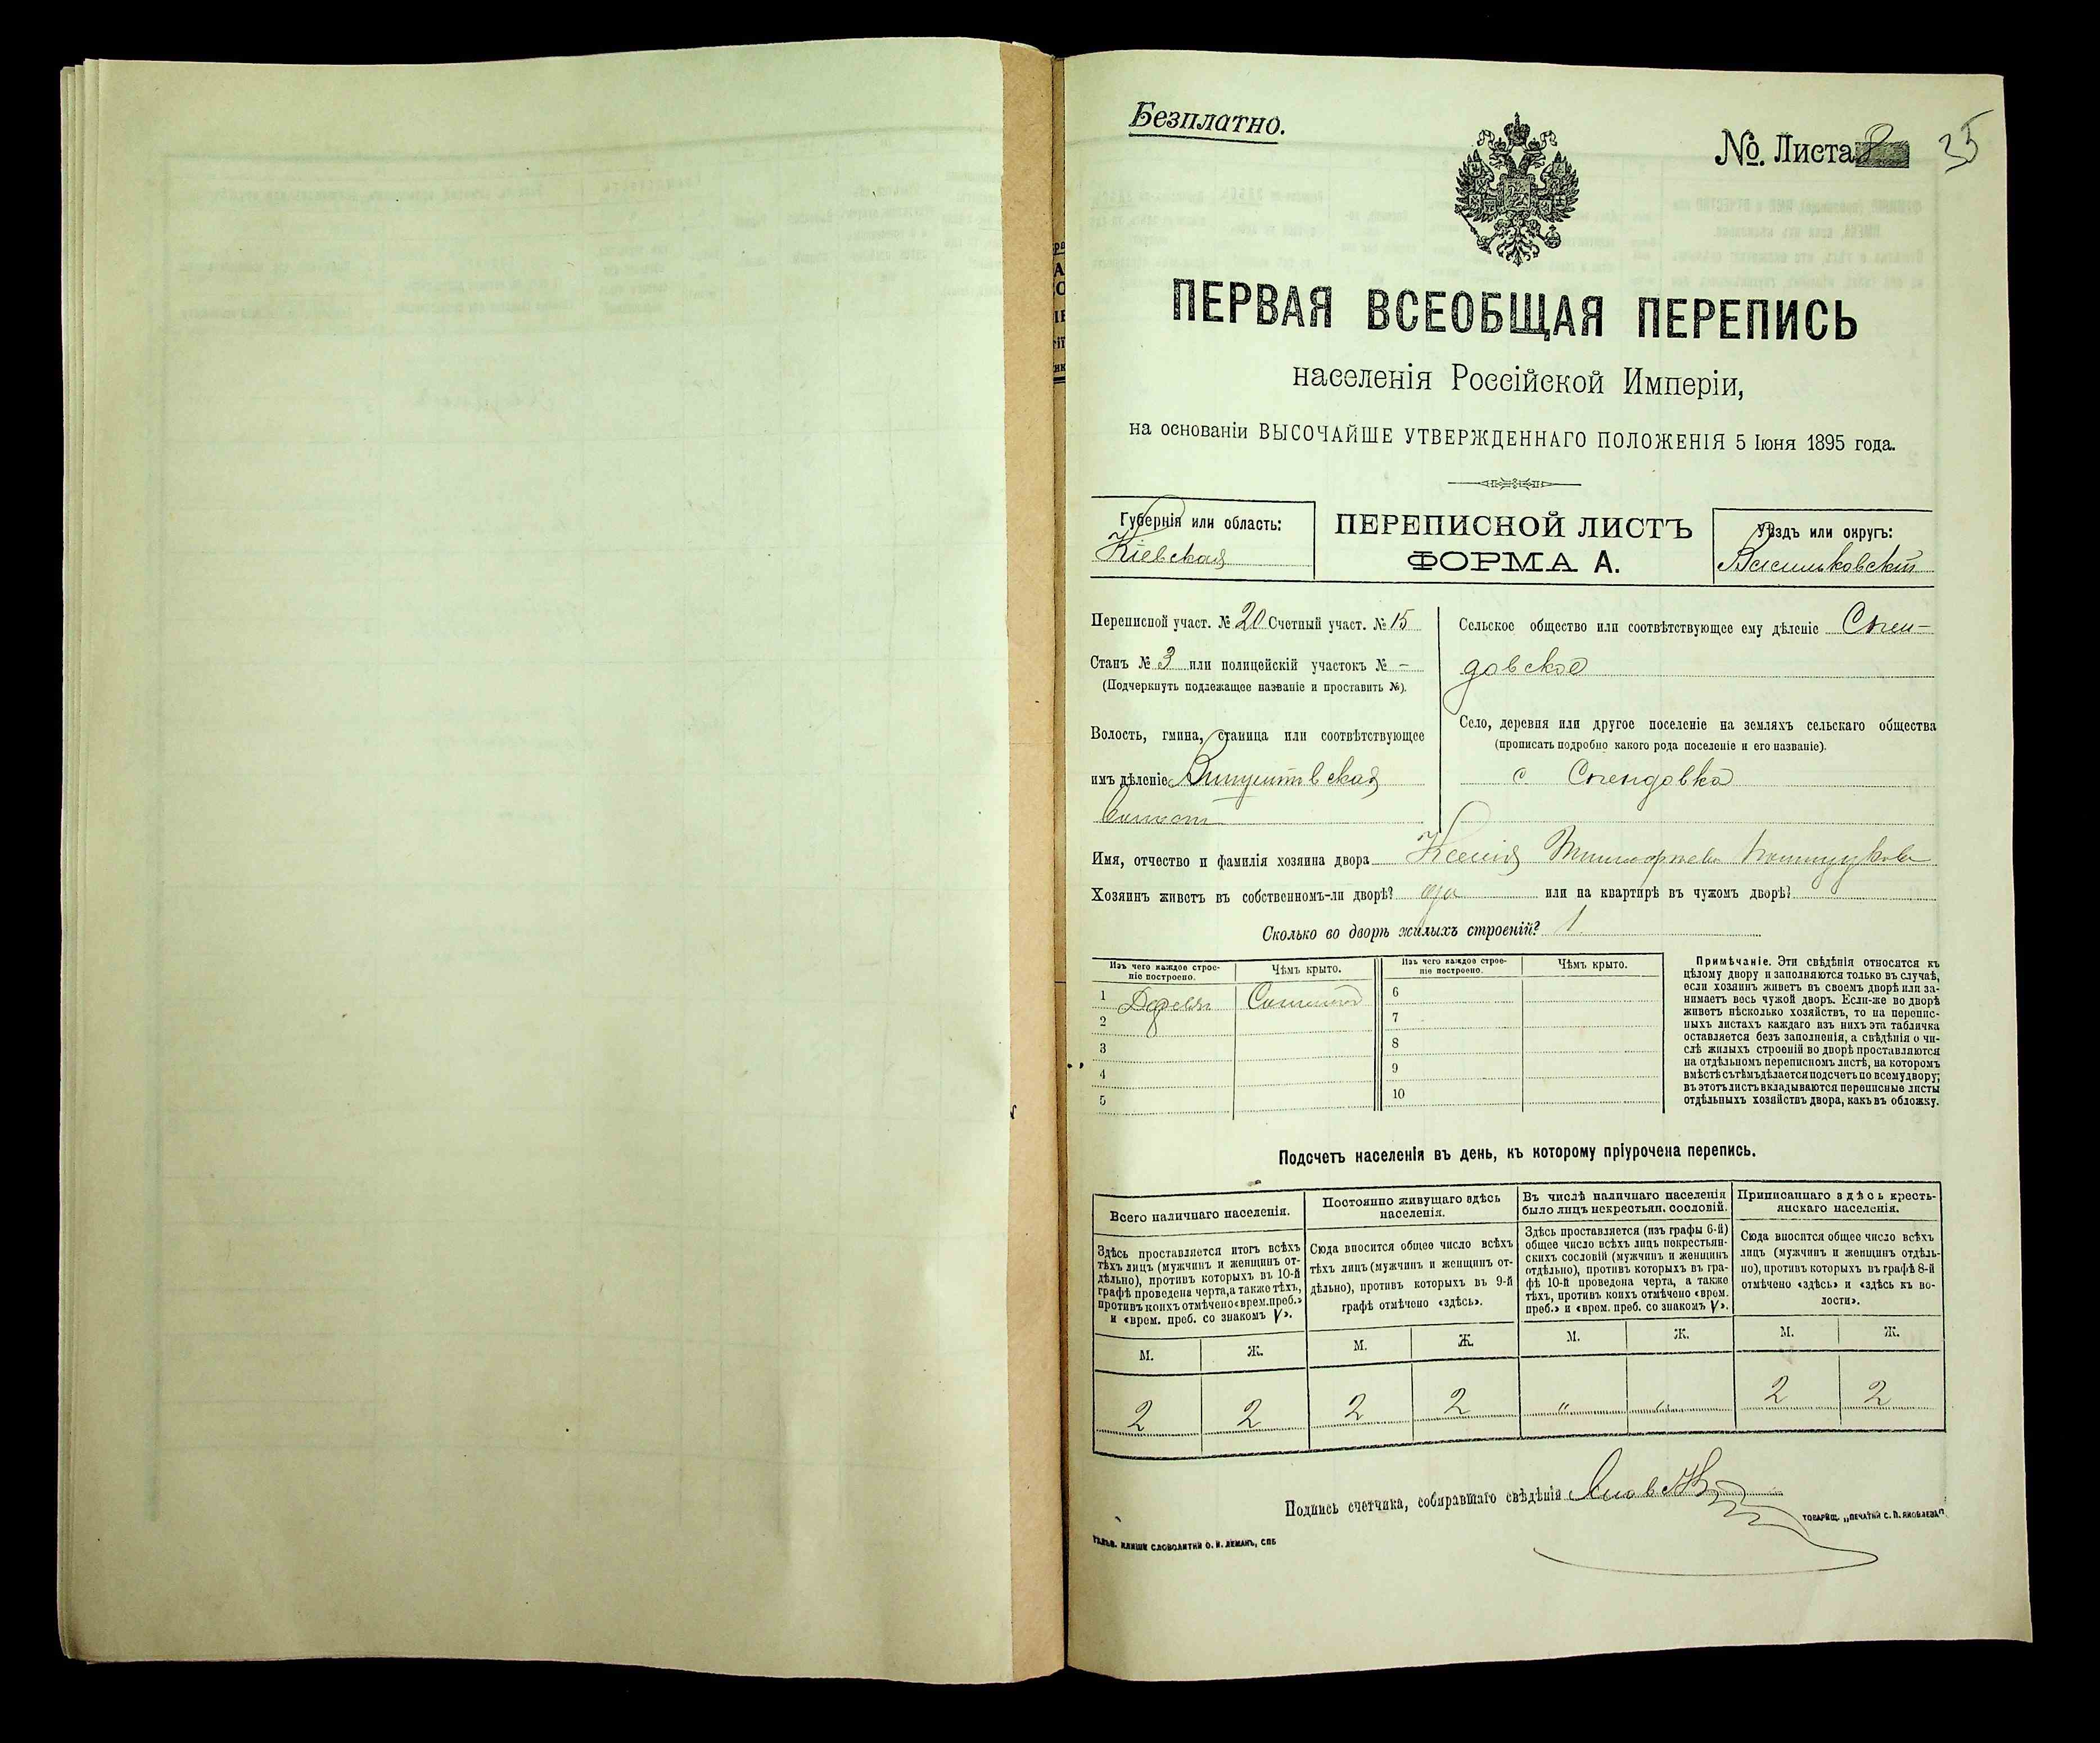 Безплатно.
№. Листа 8
35
ПЕРВАЯ ВСЕОБЩАЯ ПЕРЕПИСЬ
населенія Россійской Имперіи,
на основаніи ВЫСОЧАЙШЕ УТВЕРЖДЕННАГО ПОЛОЖЕНІЯ 5 Іюня 1895 года.
Губернія или область:
Кіевская
ПЕРЕПИСНОЙ ЛИСТЪ
ФОРМА А.
Уѣздъ или округъ:
Васильковскій
Переписной участ. № 20 Счетный участ. № 15
Станъ № 3 или полицейскій участокъ № –
(Подчеркнуть подлежащее названіе и проставить №).
Волость, гмина, станица или соотвѣтствующее
имъ дѣленіе
Сельское общество или соотвѣтствующее ему дѣленіе
довское
Село, деревня или другое поселеніе на земляхъ сельскаго общества
(прописать подробно какого рода поселеніе и его названіе).
с
Имя, отчество и фамилія хозяина двора Ксенія
Хозяинъ живетъ въ собственномъ-ли дворѣ? да или на квартирѣ въ чужомъ дворѣ?
Сколько во дворѣ жилыхъ строеній? 1
Изъ чего каждое строе-
ніе построено.
Чѣмъ крыто.
Изъ чего каждое строе-
ніе построено.
Чѣмъ крыто.
1 Дерев
2
3
4
5
6
7
8
9
10
Примѣчаніе. Эти свѣдѣнія относятся къ
цѣлому двору и заполняются только въ случаѣ,
если хозяинъ живетъ въ своемъ дворѣ или за-
нимаетъ весь чужой дворъ. Если-же во дворѣ
живетъ нѣсколько хозяйствъ, то на перепис-
ныхъ листахъ каждаго изъ нихъ эта табличка
оставляется безъ заполненія, а свѣдѣнія о чи-
слѣ жилыхъ строеній во дворѣ проставляются
на отдѣльномъ переписномъ листѣ, на которомъ
вмѣстѣ съ тѣмъ дѣлается подсчетъ по всему двору;
въ этотъ листъ вкладываются переписные листы
отдѣльныхъ хозяйствъ двора, какъ въ обложку.
Подсчетъ населенія въ день, къ которому пріурочена перепись.
Всего наличнаго населенія.
Постоянно живущаго здѣсь
населенія.
Въ числѣ наличнаго населенія
было лицъ некрестьян. сословій.
Приписаннаго здѣсь кресть-
янскаго населенія.
Здѣсь проставляется итогъ всѣхъ
тѣхъ лицъ (мужчинъ и женщинъ от-
дѣльно), противъ которыхъ въ 10-й
графѣ проведена черта, а также тѣхъ,
противъ коихъ отмѣчено «врем. преб.»
и «врем. преб. со знакомъ V».
Сюда вносится общее число всѣхъ
тѣхъ лицъ (мужчинъ и женщинъ от-
дѣльно), противъ которыхъ въ 9-й
графѣ отмѣчено «здѣсь».
Здѣсь проставляется (изъ графы 6-й)
общее число всѣхъ лицъ некрестьян-
скихъ сословій (мужчинъ и женщинъ
отдѣльно), противъ которыхъ въ гра-
фѣ 10-й проведена черта, а также
тѣхъ, противъ коихъ отмѣчено «врем.
преб.» и «врем. преб. со знакомъ V».
Сюда вносится общее число всѣхъ
лицъ (мужчинъ и женщинъ отдѣль-
но), противъ которыхъ въ графѣ 8-й
отмѣчено «здѣсь» и «здѣсь къ во-
лости».
М. Ж. М. Ж. М. Ж. М. Ж.
2 2 2 2 " " 2 2
Подпись счетчика, собиравшаго свѣдѣнія
ТОВАРИЩ. „ПЕЧАТНИ С. П. ЯКОВЛЕВА"
ГАЛЬВ. КЛИШЕ СЛОВОЛИТНИ О. И. ЛЕМАНЪ, СПБ